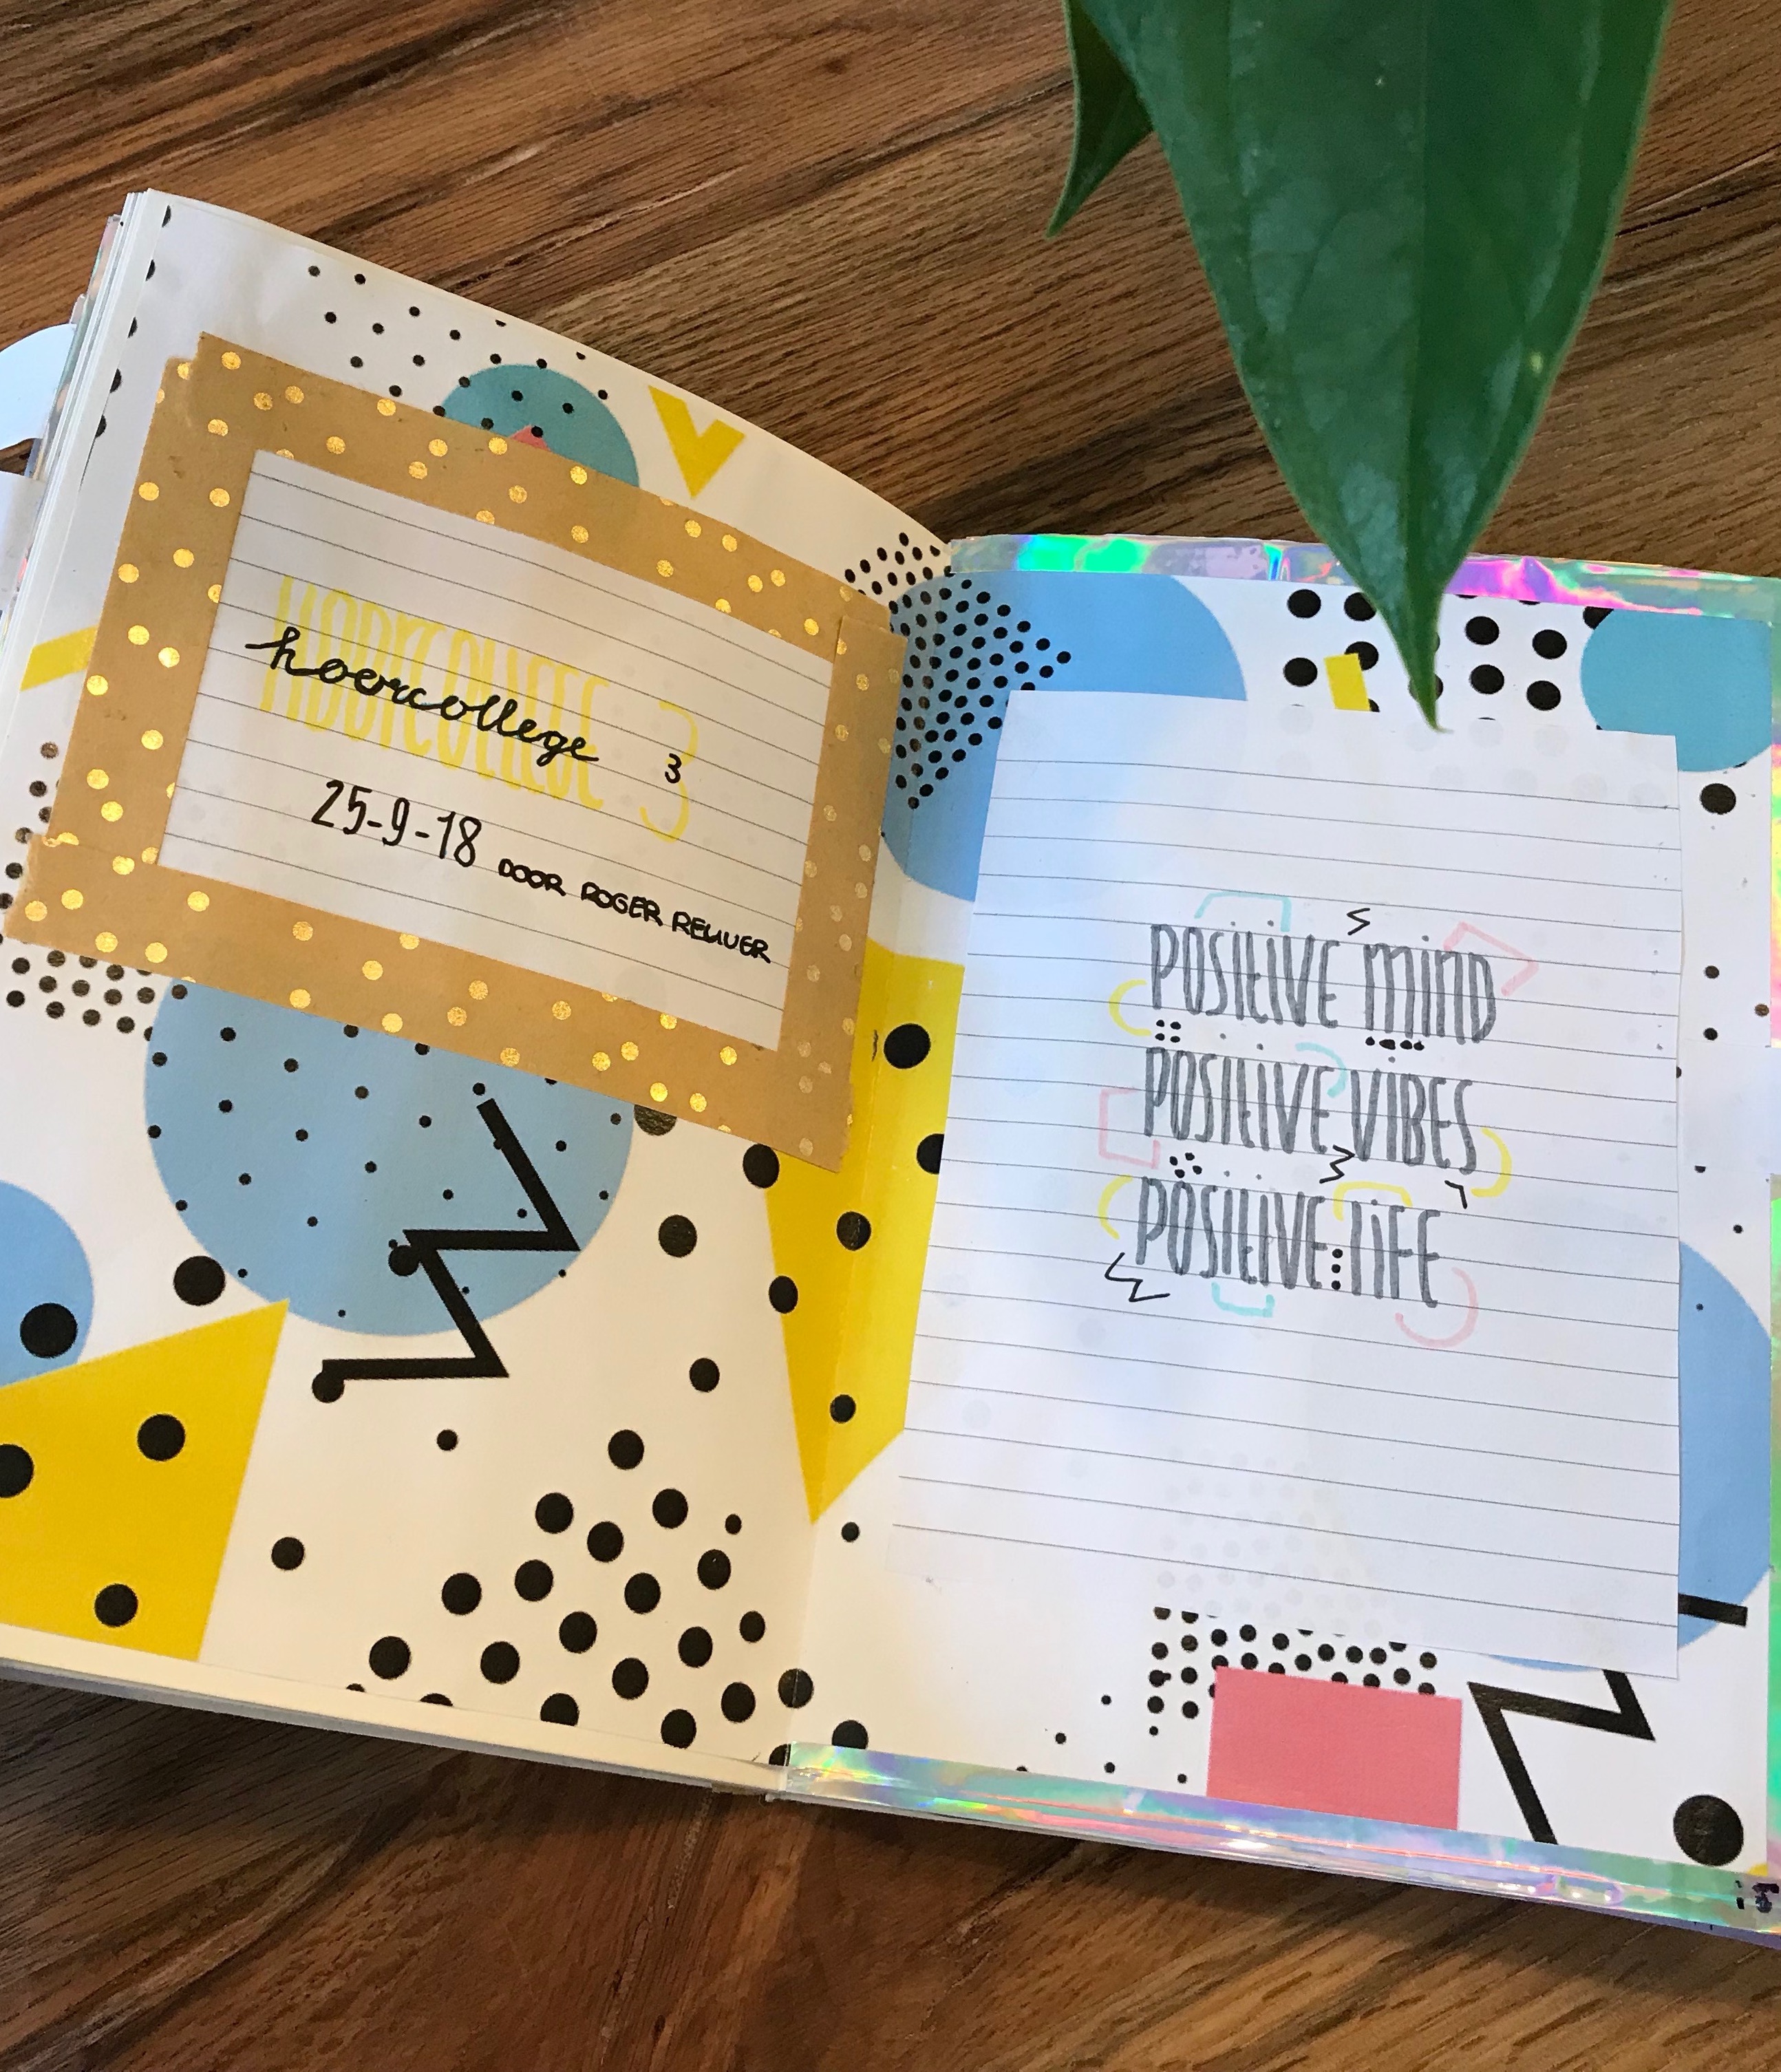 HOORCOLLEGE 3
hoorcollege 3
25-9-18 DOOR ROGER
POSITIVE MIND
POSITIVE VIBES
POSITIVE LIFE